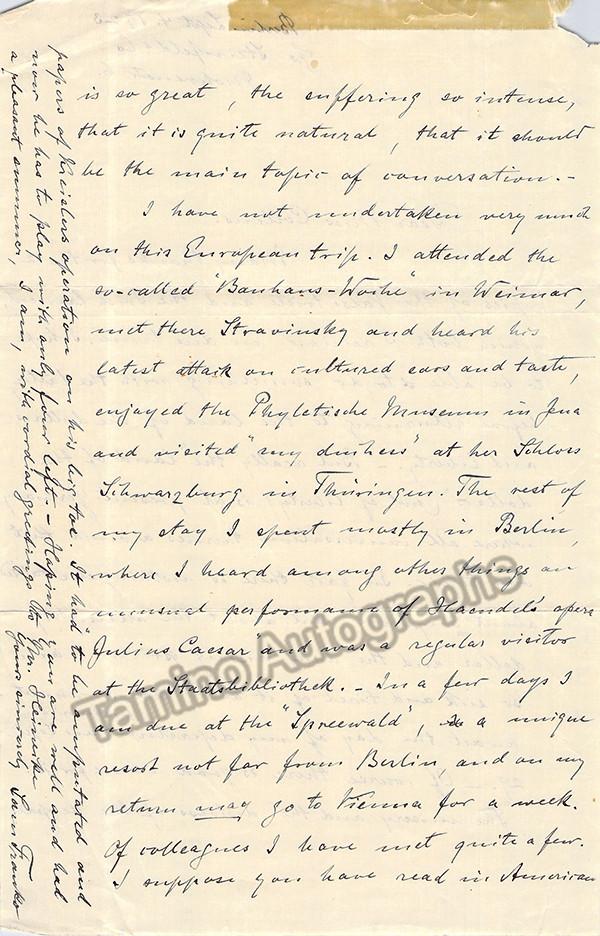 is so great, the suffering so intense,
that it is quite natural, that it should
be the main topic of conversation. -
I have not undertaken very much
on this European trip. I attended the
so-called "Bauhaus-Woche" in Weimar,
met there Stravinsky and heard his
latest attack on cultured ears and taste,
enjoyed the Phyletische Museum in Jena
and visited "my duchess" at her Schloss
Schwarzburg in Thüringen. The rest of
my stay I spent mostly in Berlin,
where I heard among other things an
unusual performance of Haendel's opera
"Julius Caesar" and was a regular visitor
at the Staatsbibliothek. - In a few days I
am due at the "Spreewald", a unique
resort not far from Berlin, and on my
return may go to Vienna for a week.
Of colleagues I have met quite a few.
I suppose you have read in American
papers of Kreislers operation on his big toe. It had to be amputated and
now he has to play with only four left. - Hoping you are well and had
a pleasant summer, I am, with cordial greetings to Mr. Heinroth
Yours sincerely Sam Franko
Tamino Autographs